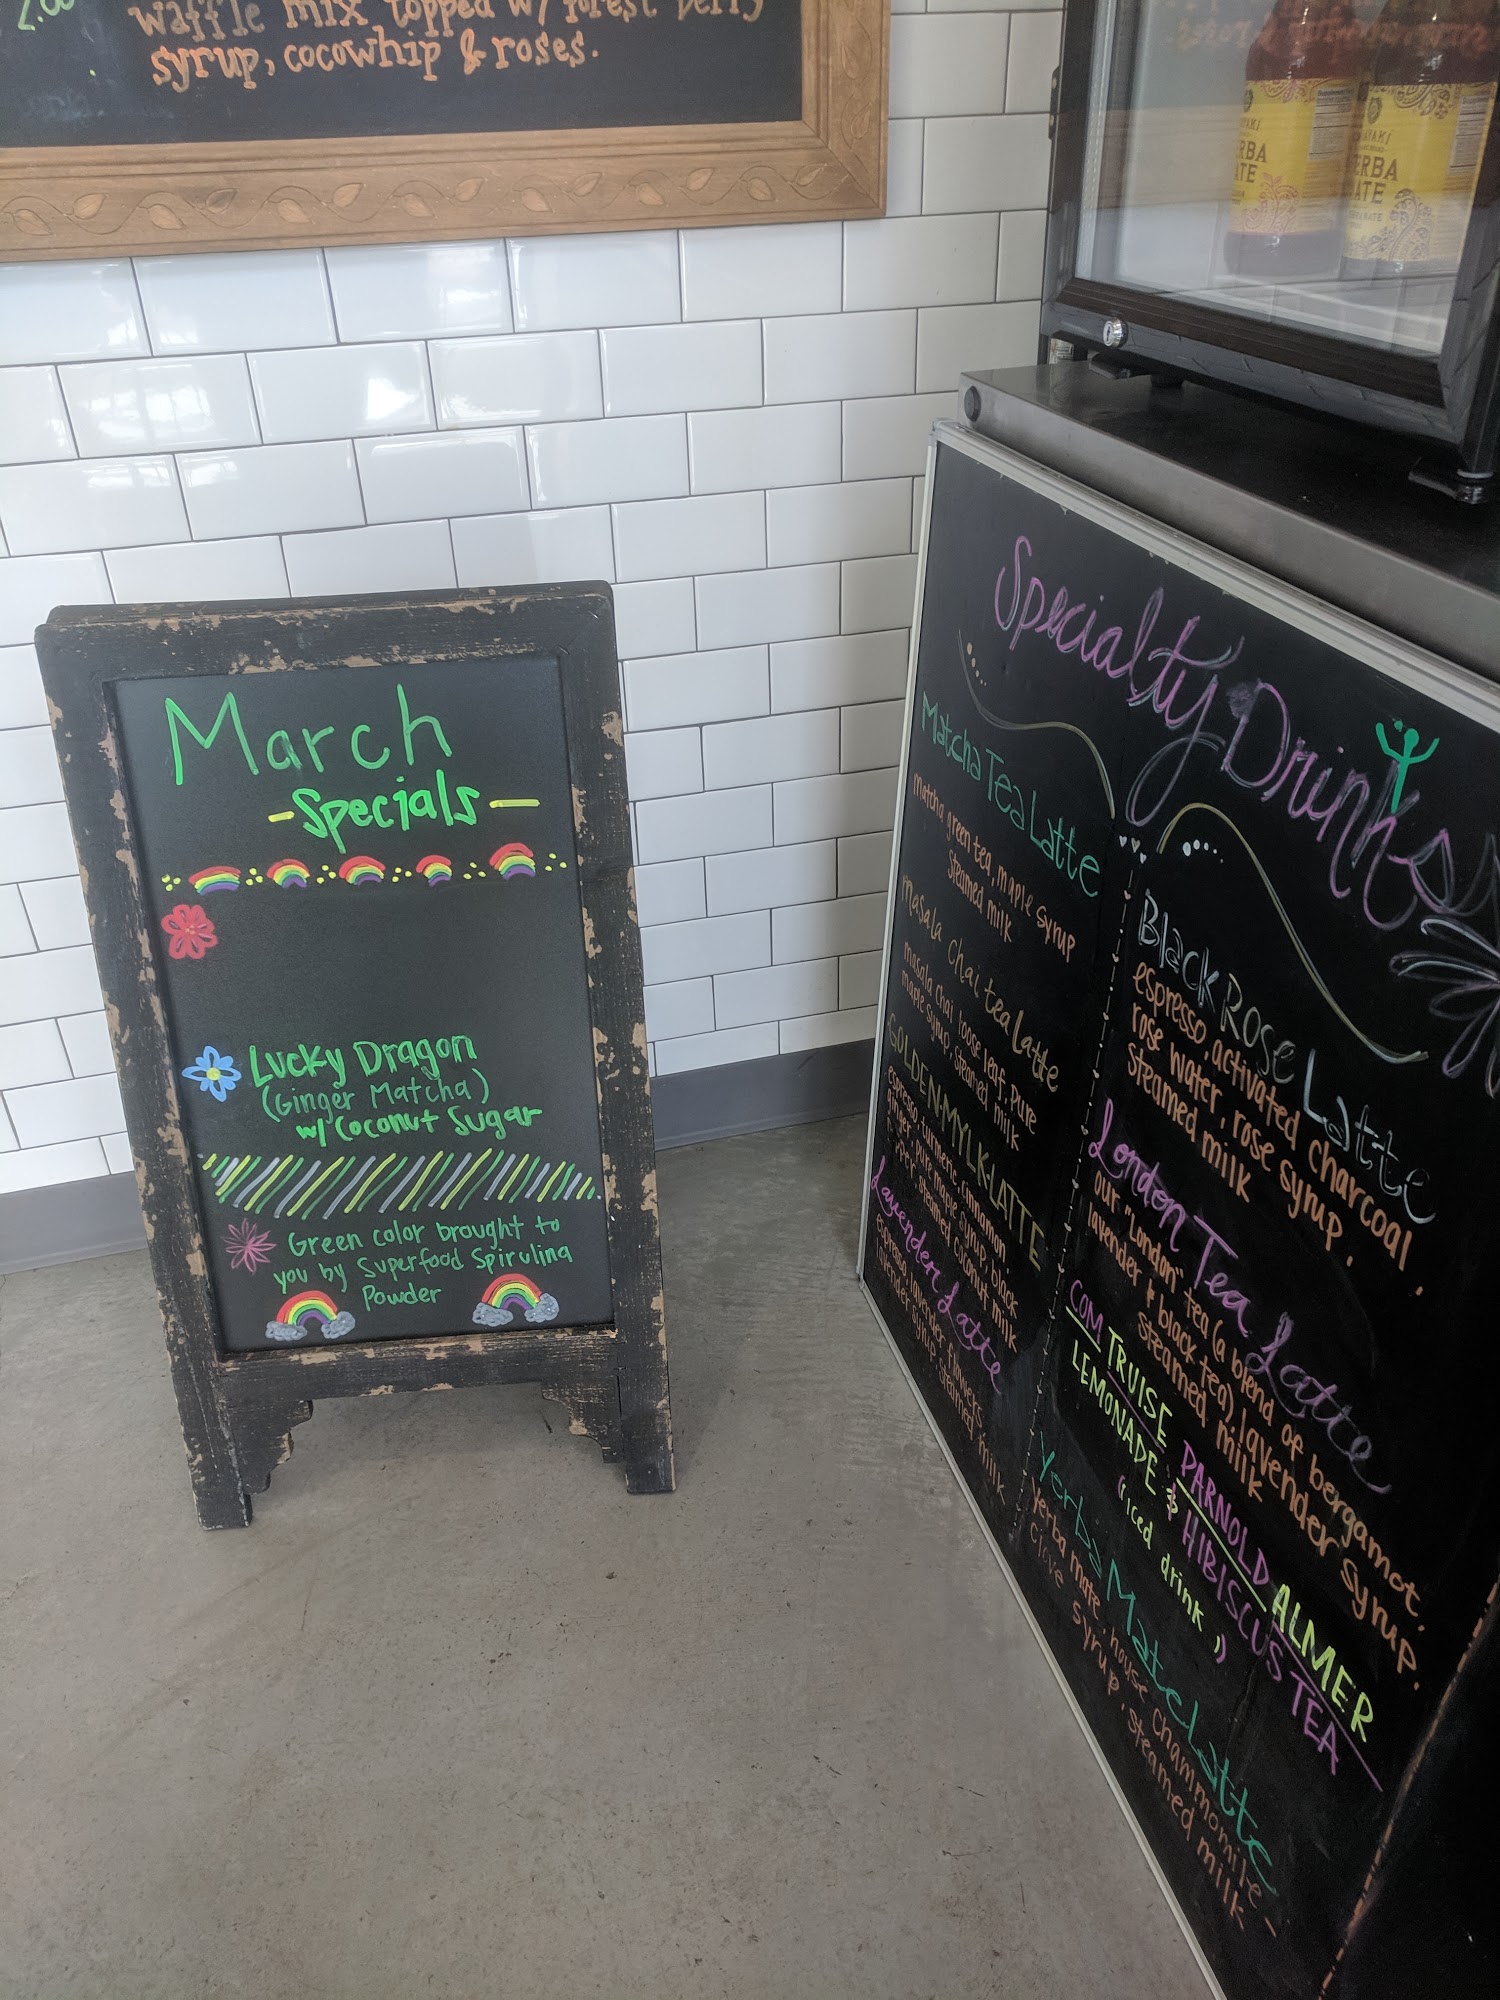 2.00
waffle mix topped w/ forest berry
syrup, cocowhip & roses.
YERBA
MATE
March
-Specials-
Lucky Dragon
(Ginger Matcha)
w/ Coconut Sugar
Green color brought to
you by Superfood Spirulina
Powder
Specialty Drinks
Matcha Tea Latte
matcha green tea, maple syrup
steamed milk
masala chai tea latte
masala chai loose leaf, pure
maple syrup, steamed milk
GOLDEN-MYLK-LATTE
espresso, turmeric, cinnamon,
ginger, pure maple syrup, black
pepper, steamed coconut milk
Lavender Latte
espresso, lavender flowers
lavender syrup steamed milk
Black Rose Latte
espresso, activated charcoal,
rose water, rose syrup,
steamed milk
London Tea Latte
our "London" tea (a blend of bergamot,
lavender & black tea), lavender syrup.
steamed milk
COM TRUISE PARNOLD ALMER
LEMONADE & HIBISCUS TEA
(iced drink)
Yerba Mate Latte
yerba mate, house chammomile-
clove syrup, steamed milk